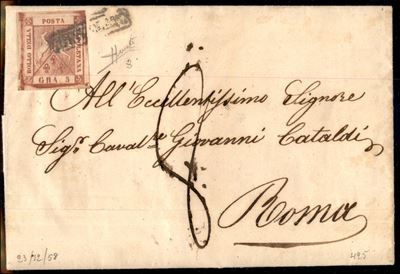 POSTA
BOLLO DELLA
NAPOLETANA
GRA 5
8
All' Eccellentissimo Signore
Sigr. Cavalre Giovanni Cataldi
Roma
23/12/58
425